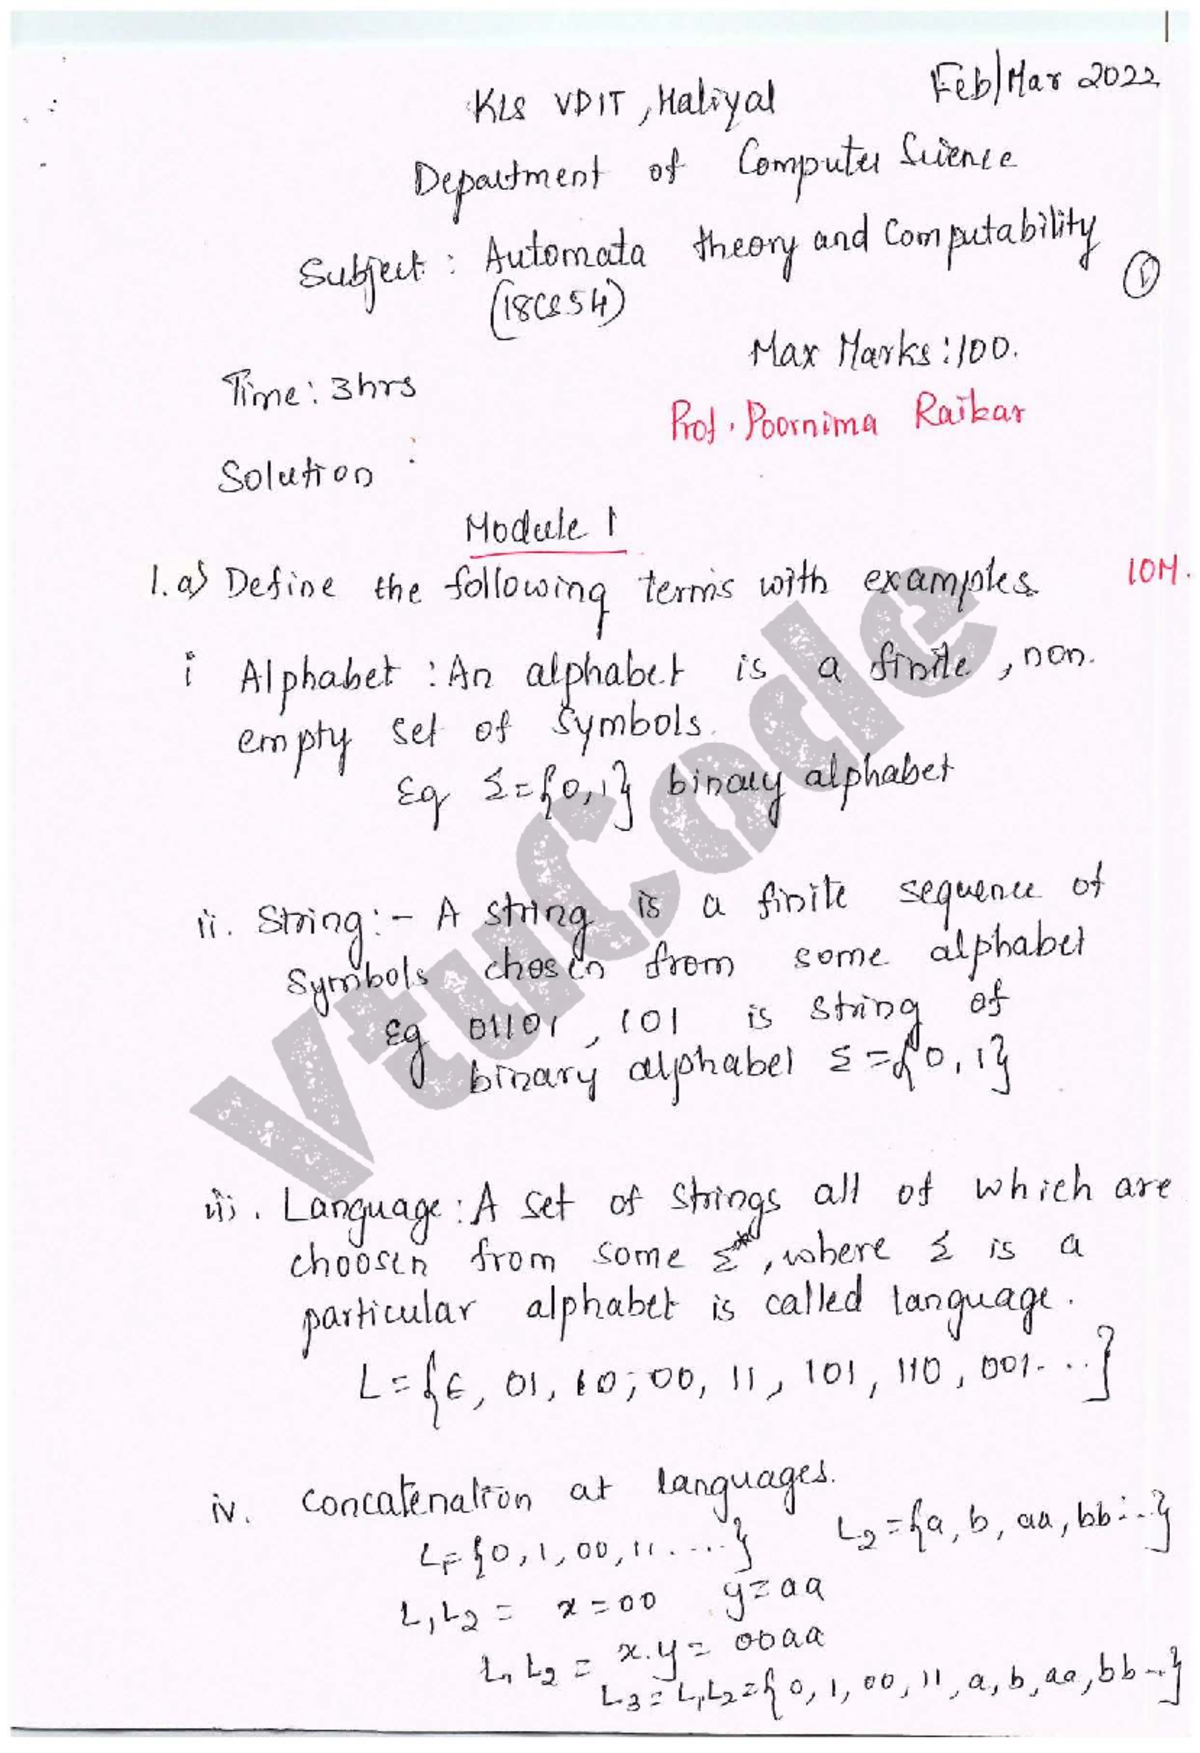 Feb/Mar 2022
KLS VDIT, Haliyal
Department of Computer Science
Subject: Automata theory and Computability
(18CS54)
1
Max Marks: 100.
Time: 3hrs
Prof. Poornima Raikar
Solution :
Module 1
1.a) Define the following terms with examples. 10M.
i Alphabet : An alphabet is a finite, non.
empty set of symbols.
Eg Σ={0,1} binary alphabet
ii. String:- A string is a finite sequence of
symbols chosen from some alphabet
Eg 01101, 101 is string of
binary alphabet Σ={0,1}
iii. Language: A set of strings all of which are
choosen from some Σ*, where Σ is a
particular alphabet is called language.
L={ε, 01, 10, 00, 11, 101, 110, 001...}
iv. Concatenation at languages.
L1={0,1,00,11....} L2={a,b,aa,bb...}
L1L2 = x=00 y=aa
L1L2 = x.y= 00aa
L3=L1L2={0,1,00,11,a,b,aa,bb...}
VtuCode